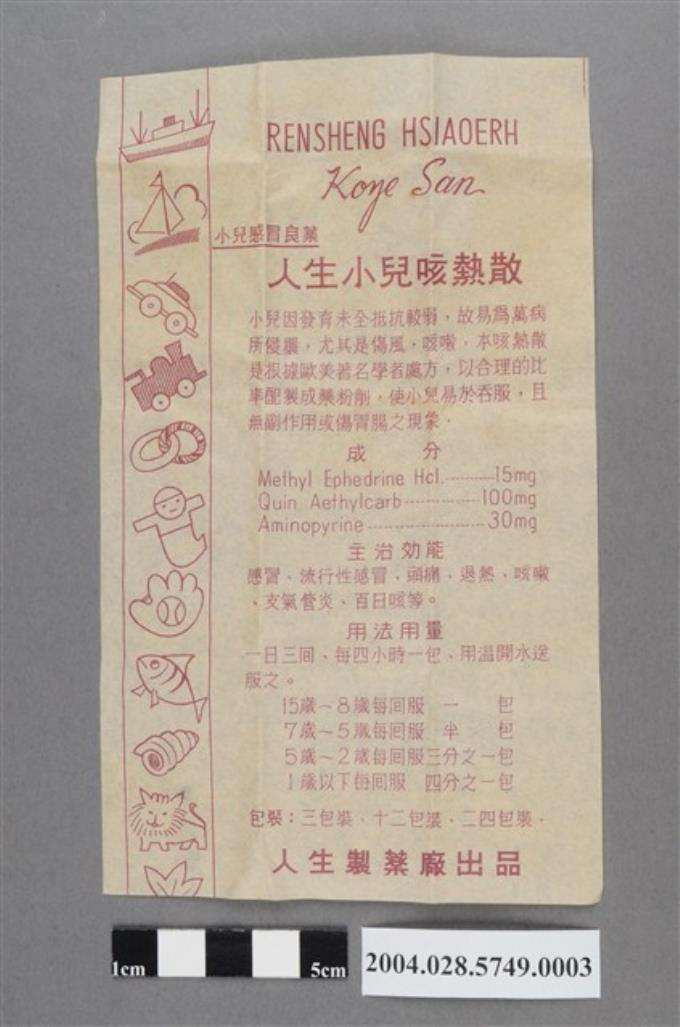 RENSHENG HSIAOERH
Koye San
小兒感冒良藥
人生小兒咳熱散
小兒因發育未全抵抗較弱，故易爲萬病
所侵襲，尤其是傷風，咳嗽，本咳熱散
是根據歐美著名學者處方，以合理的比
率配製成藥粉劑，使小兒易於吞服，且
無副作用或傷胃腸之現象．
成 分
Methyl Ephedrine Hcl.--------15mg
Quin Aethylcarb------------100mg
Aminopyrine----------------30mg
主治効能
感冒、流行性感冒、頭痛、退熱、咳嗽
、支氣管炎、百日咳等。
用法用量
一日三回、每四小時一包、用溫開水送
服之。
15歲～8歲每回服 一 包
7歲～5歲每回服 半 包
5歲～2歲每回服三分之一包
1歲以下每回服 四分之一包
包裝：三包裝．十二包裝．二四包裝．
人生製藥廠出品
1cm
5cm
2004.028.5749.0003